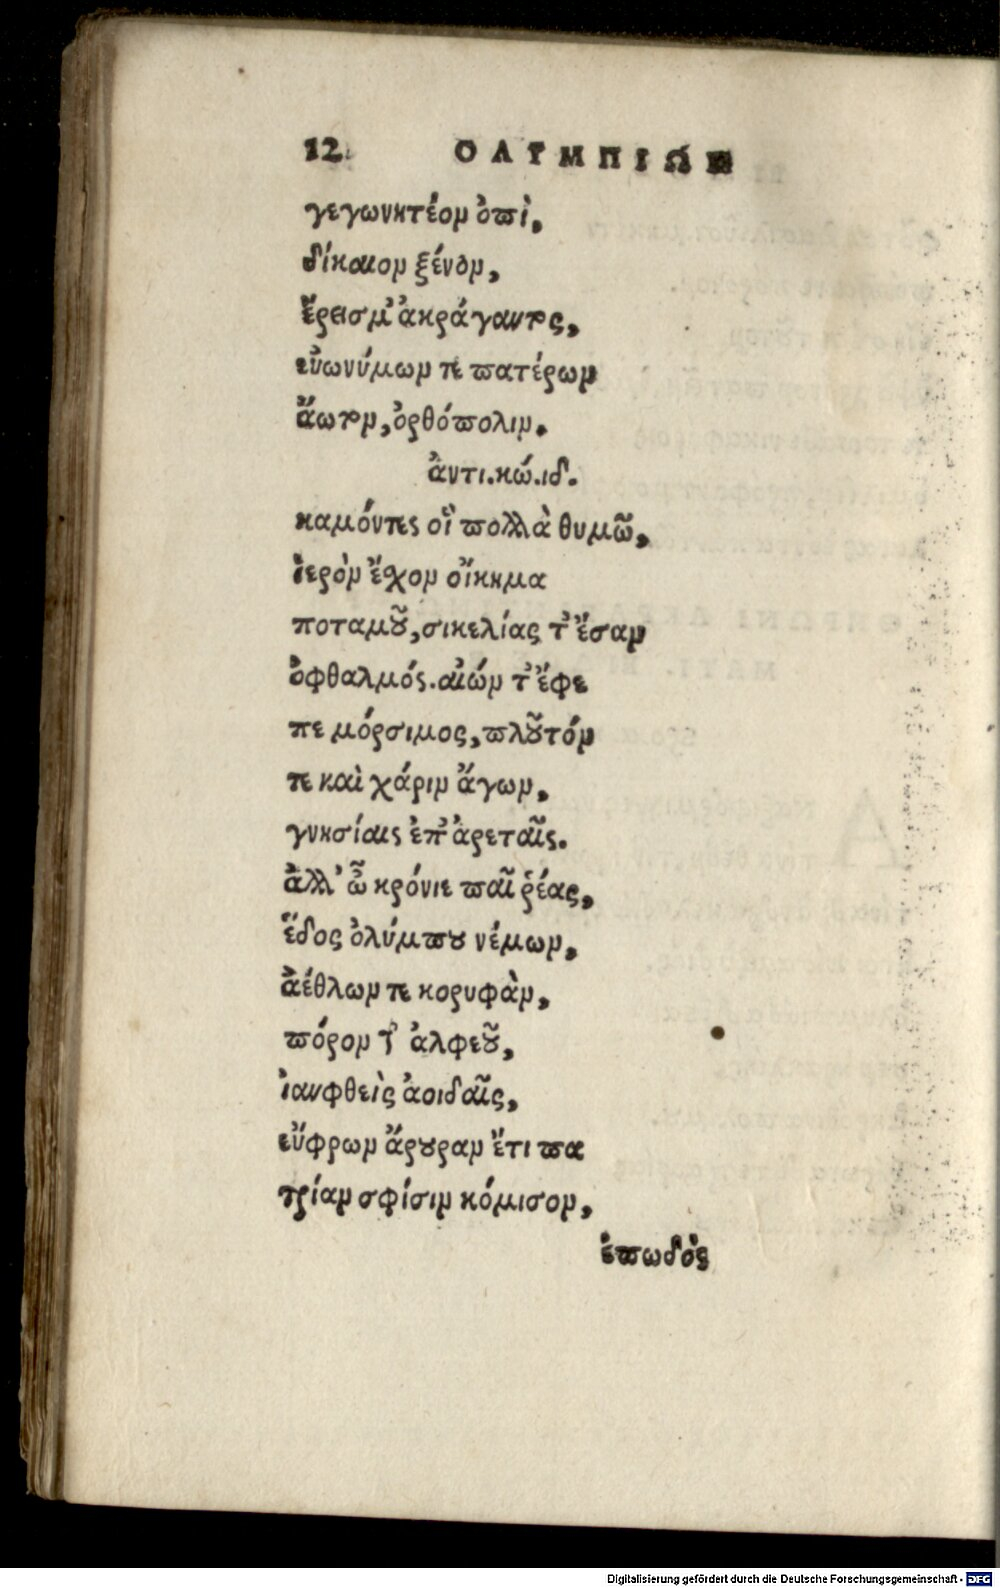 12 ΟΛΥΜΠΙΩΝ
γεγωνητέον ὀπὶ,
δίκαιον ξένον,
ἔρεισμ' ἀκράγαντος,
εὐωνύμων τε πατέρων
ἄωτον, ὀρθόπολιν.
ἀντι. κώ. ιδ.
καμόντες οἳ πολλὰ θυμῶ,
ἱερὸν ἔχον οἴκημα
ποταμοῦ, σικελίας τ' ἔσαν
ὀφθαλμός. αἰών τ' ἔφε
πε μόρσιμος, πλοῦτόν
τε καὶ χάριν ἄγων,
γνησίαις ἐπ' ἀρεταῖς.
ἀλλ' ὦ κρόνιε παῖ ῥέας,
ἕδος ὀλύμπου νέμων,
ἀέθλων τε κορυφὰν,
πόρον τ' ἀλφεοῦ,
ἰανθεὶς ἀοιδαῖς,
εὔφρων ἄρουραν ἔτι πα
τρίαν σφίσιν κόμισον,
ἐπωδὸς
Digitalisierung gefördert durch die Deutsche Forschungsgemeinschaft - DFG